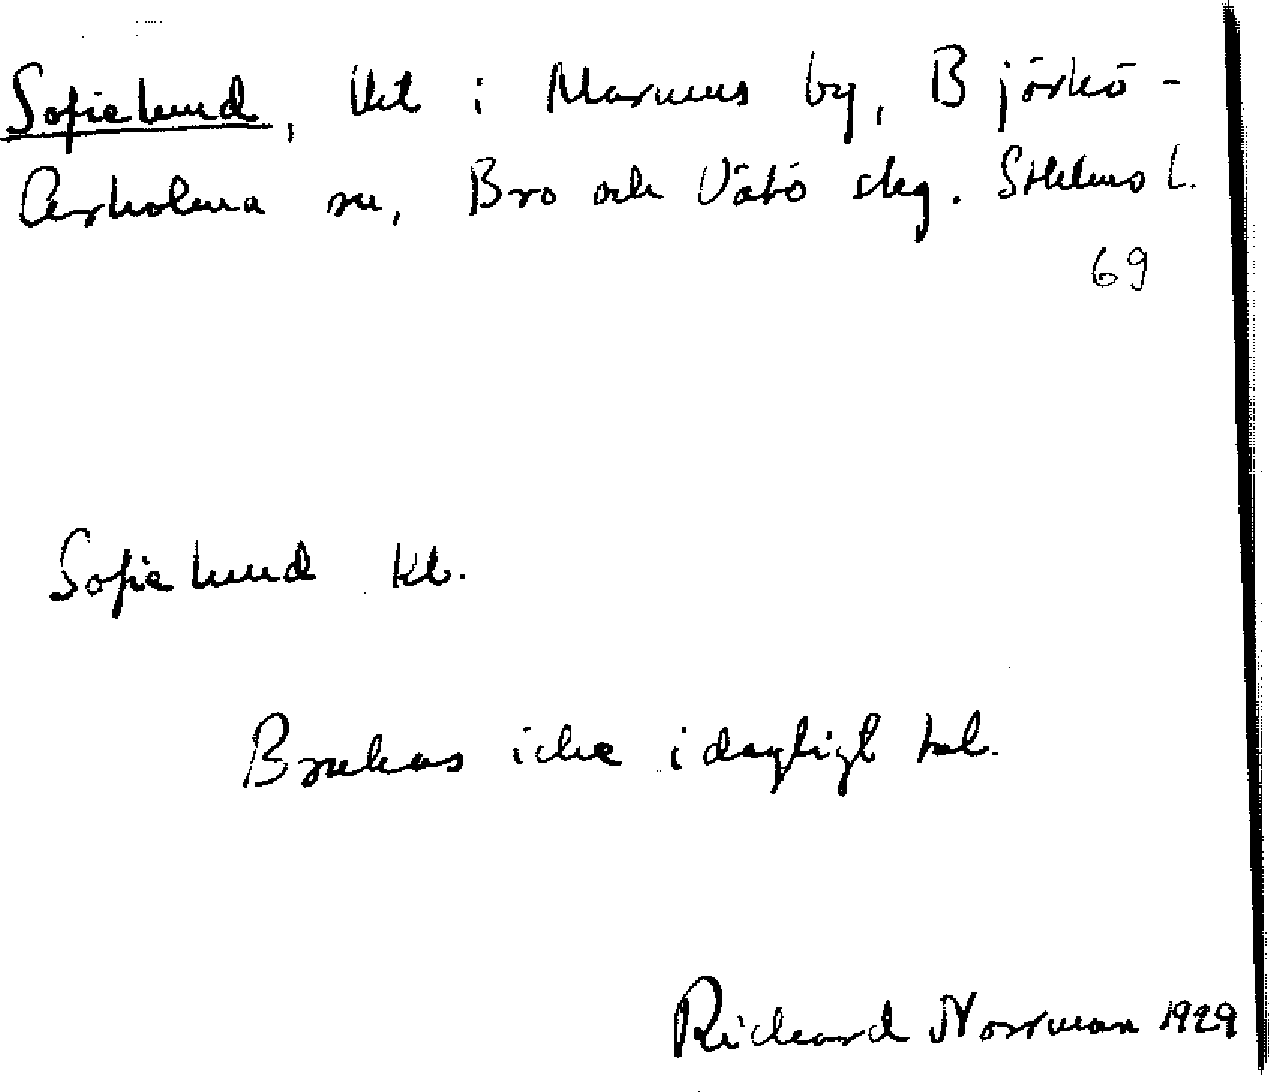 Sofielund, lht i Marums by, Björkö-
Arholma sn, Bro och Vätö skg. Sthlms l.
69
Sofielund kl.
Brukas icke i dagligt tal.
Richard Norrman 1929